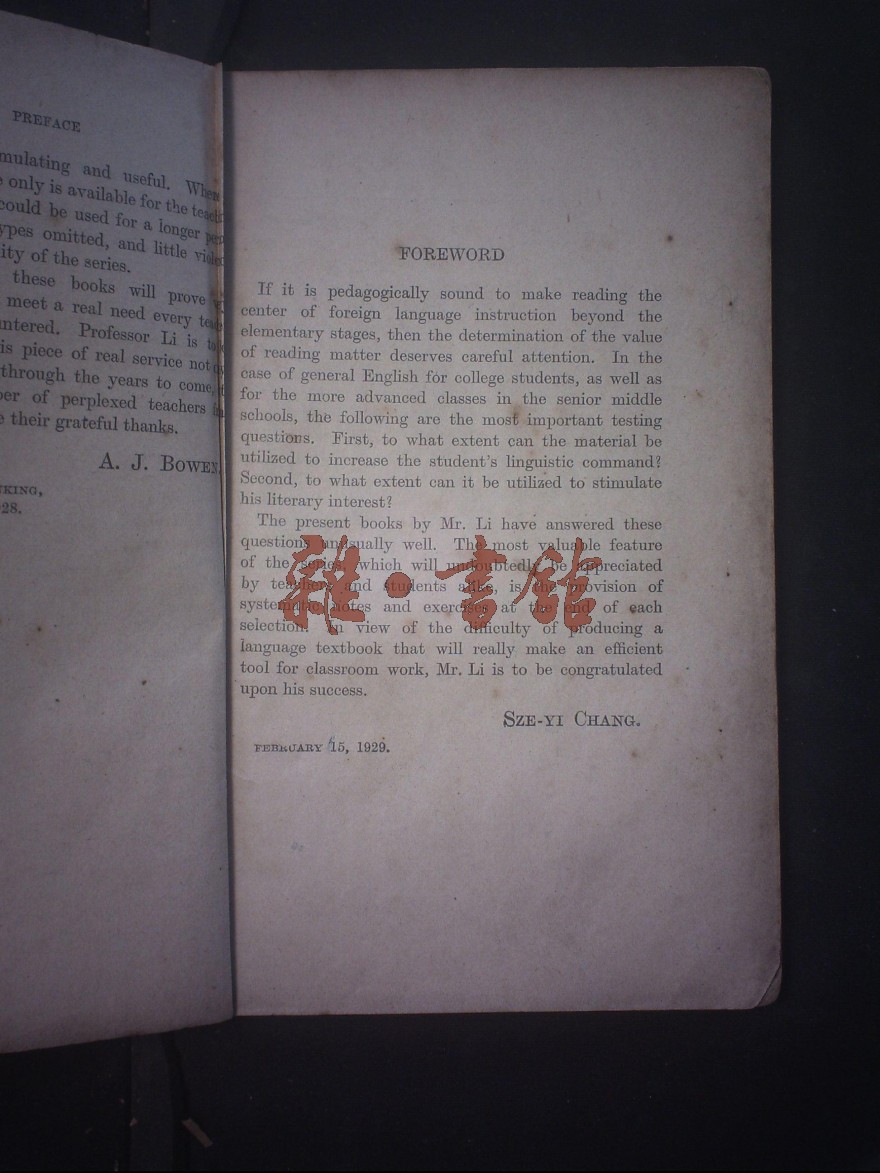 PREFACE
mulating and useful.
only is available for the
could be used for a longer
ypes omitted, and little
ity of the series.
these books will prove
meet a real need every
ntered. Professor Li is
is piece of real service not
through the years to come,
er of perplexed teachers
their grateful thanks.
A. J. BOWEN
KING,
28.
FOREWORD
If it is pedagogically sound to make reading the
center of foreign language instruction beyond the
elementary stages, then the determination of the value
of reading matter deserves careful attention. In the
case of general English for college students, as well as
for the more advanced classes in the senior middle
schools, the following are the most important testing
questions. First, to what extent can the material be
utilized to increase the student's linguistic command?
Second, to what extent can it be utilized to stimulate
his literary interest?
The present books by Mr. Li have answered these
questions unusually well. The most valuable feature
of the series, which will undoubtedly be appreciated
by teachers and students alike, is the provision of
systematic notes and exercises at the end of each
selection. In view of the difficulty of producing a
language textbook that will really make an efficient
tool for classroom work, Mr. Li is to be congratulated
upon his success.
SZE-YI CHANG.
FEBRUARY 15, 1929.
書館